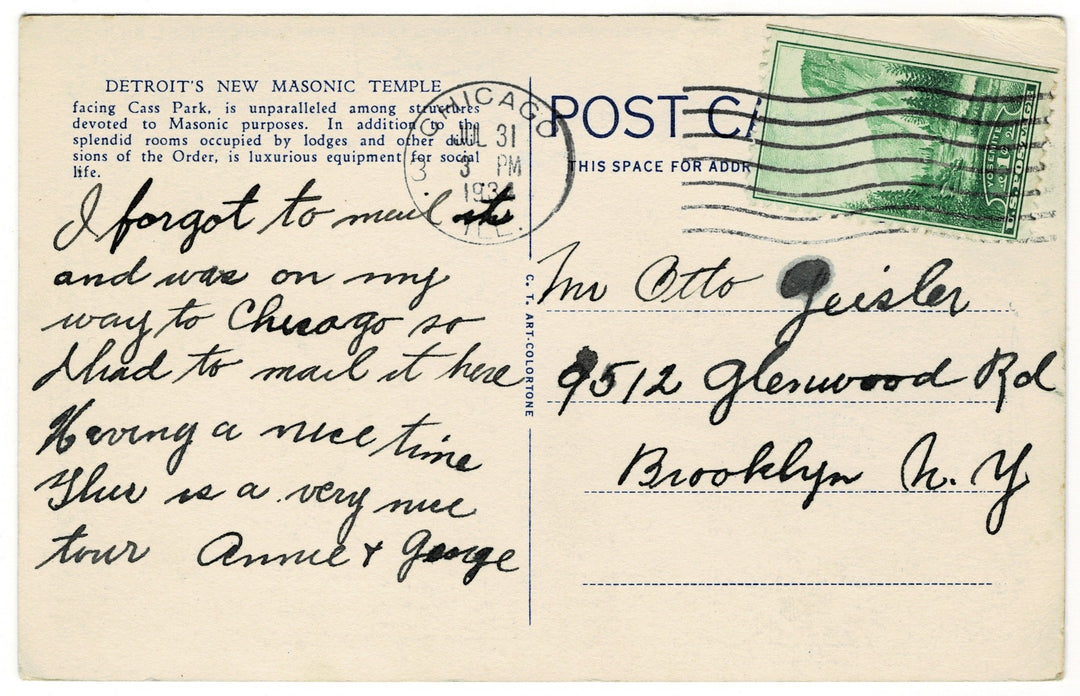 DETROIT'S NEW MASONIC TEMPLE
facing Cass Park, is unparalleled among structures
devoted to Masonic purposes. In addition to the
splendid rooms occupied by lodges and other divi-
sions of the Order, is luxurious equipment for social
life.
I forgot to mail it
and was on my
way to Chicago so
I had to mail it here
Having a nice time
This is a very nice
tour Annie + George
CHICAGO
JUL 31
3 PM
1934
ILL.
3
C. T. ART-COLORTONE
POST CA
THIS SPACE FOR ADDR
YOSEMITE
U.S. POSTAGE
Mr Otto Geisler
9512 Glenwood Rd
Brooklyn N. Y